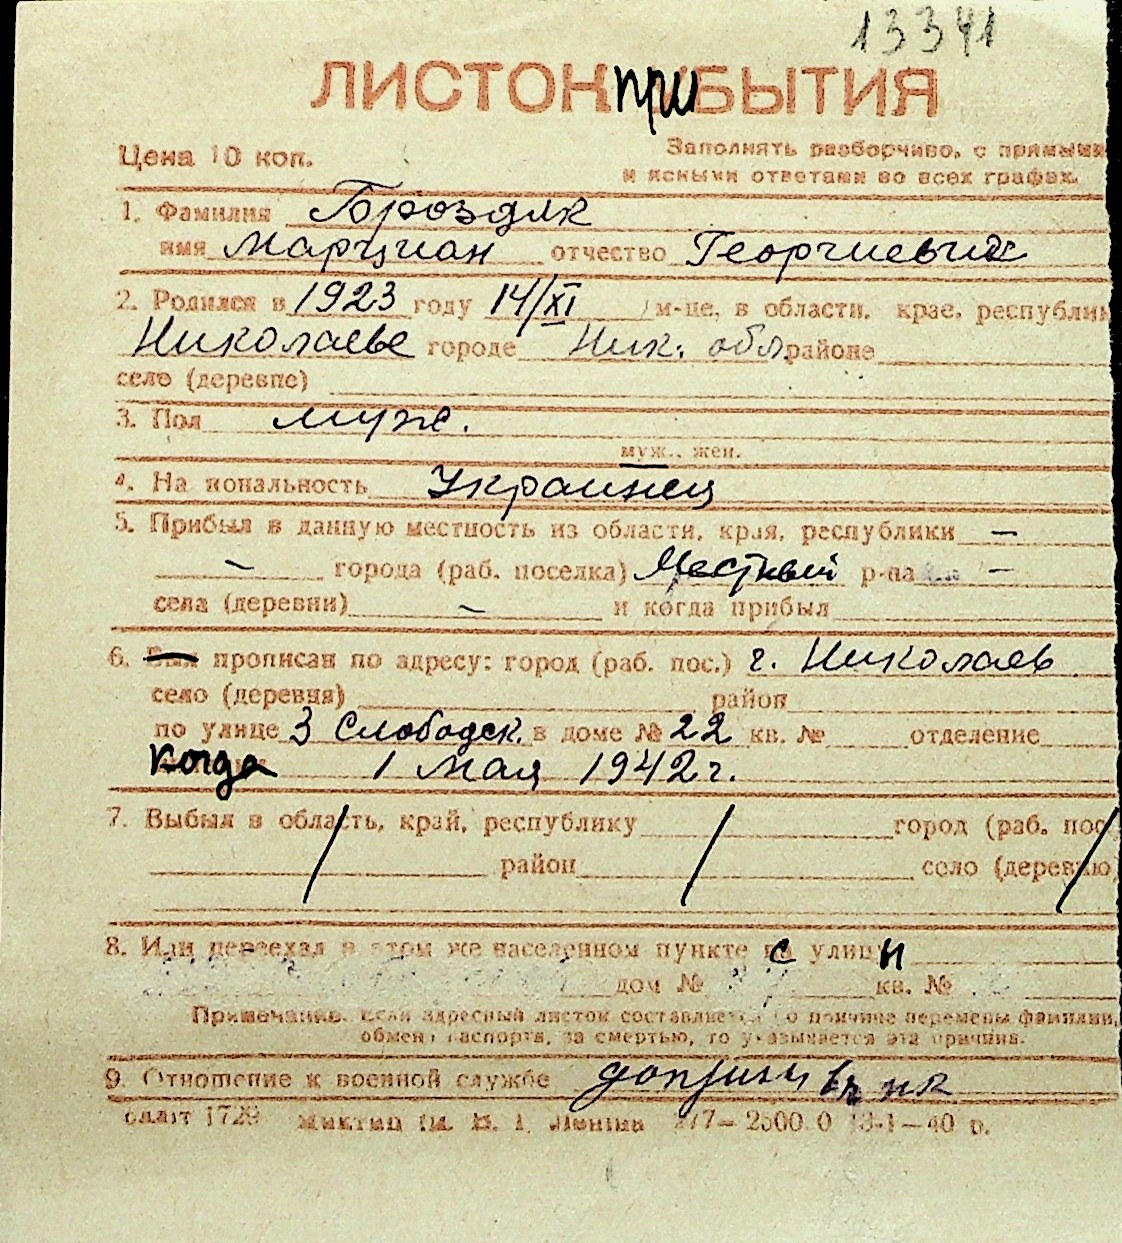 13341
ЛИСТОК ПРИБЫТИЯ
Цена 10 коп.
Заполнять разборчиво, с прямыми
и ясными ответами во всех графах.
1. Фамилия Гороздяк
имя Марциан отчество Георгиевич
2. Родился в 1923 году 14/XI м-це, в области, крае, республик
Николаеве городе Ник. обл. районе
село (деревне)
3. Пол муж.
муж., жен.
4. На иональность Украинец
5. Прибыл в данную местность из области, края, республики —
— города (раб. поселка) Местный р-на —
села (деревни) — и когда прибыл
6. прописан по адресу: город (раб. пос.) г. Николаев
село (деревня) район
по улице 3 Слободск. в доме № 22 кв. № отделение
Когда 1 мая 1942 г.
7. Выбыл в область, край, республику город (раб. пос
район село (деревню)
8. Или переехал в этом же населенном пункте с улицы
дом № кв. №
Примечание. Если адресный листок составляется по причине перемены фамилии,
обмена паспорта, за смертью, то указывается эта причина.
9. Отношение к военной службе
1729 им. В. И. Ленина 277—2500 0 13-1—40 р.